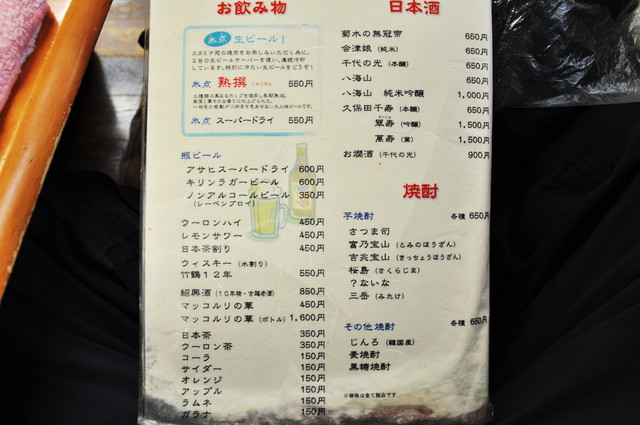 お飲み物
氷点 生ビール！
氷点 熟撰 550円
氷点 スーパードライ 550円
瓶ビール
アサヒスーパードライ 600円
キリンラガービール 600円
ノンアルコールビール 350円
ウーロンハイ 450円
レモンサワー 450円
日本茶割り 450円
ウィスキー（水割り）
竹鶴１２年 550円
紹興酒（１０年物・古越老酒） 850円
マッコルリの蕈 450円
マッコルリの蕈（ボトル） 1,600円
日本茶 350円
ウーロン茶 350円
コーラ 150円
サイダー 150円
オレンジ 150円
アップル 150円
ラムネ 150円
ガラナ 150円
日本酒
菊水の無冠帝 650円
会津娘（純米） 650円
千代の光（本醸） 650円
八海山 650円
八海山 純米吟醸 1,000円
久保田千寿（本醸） 650円
翠寿（吟醸） 1,500円
萬寿 1,500円
お燗酒（千代の光） 900円
焼酎
芋焼酎 各種 650円
さつま司
富乃宝山（とみのほうざん）
吉兆宝山（きっちょうほうざん）
桜島（さくらじま）
？ないな
三岳（みたけ）
その他焼酎 各種 650円
じんろ（韓国産）
麦焼酎
黒糖焼酎
※価格は全て税込です